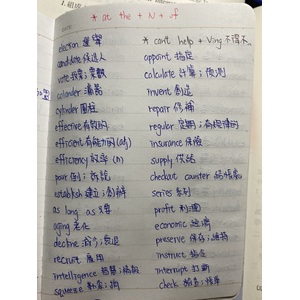 * at the + N + of
election 選舉
candidate 候選人
vote 投票;票數
colander 濾器
cylinder 圓柱
effective 有效的
efficient 有能力的 (adj)
efficiency 效率 (n)
pour 倒;
establish 建立;
as long as 只要
aging 老化
decline 減少;衰退
recruit 雇用
intelligence 智慧;
squeeze
* can't help + Ving 不得不
appoint 指定
calculate 計算;預測
invent 創造
repair 修補
regular 定期;有規律的
insurance 保險
supply 供給
checkout counter 結帳
series 系列
profit 利潤
economic 經濟
preserve 保存;維持
instruct 指定
interrupt 打斷
check 檢查;帳單